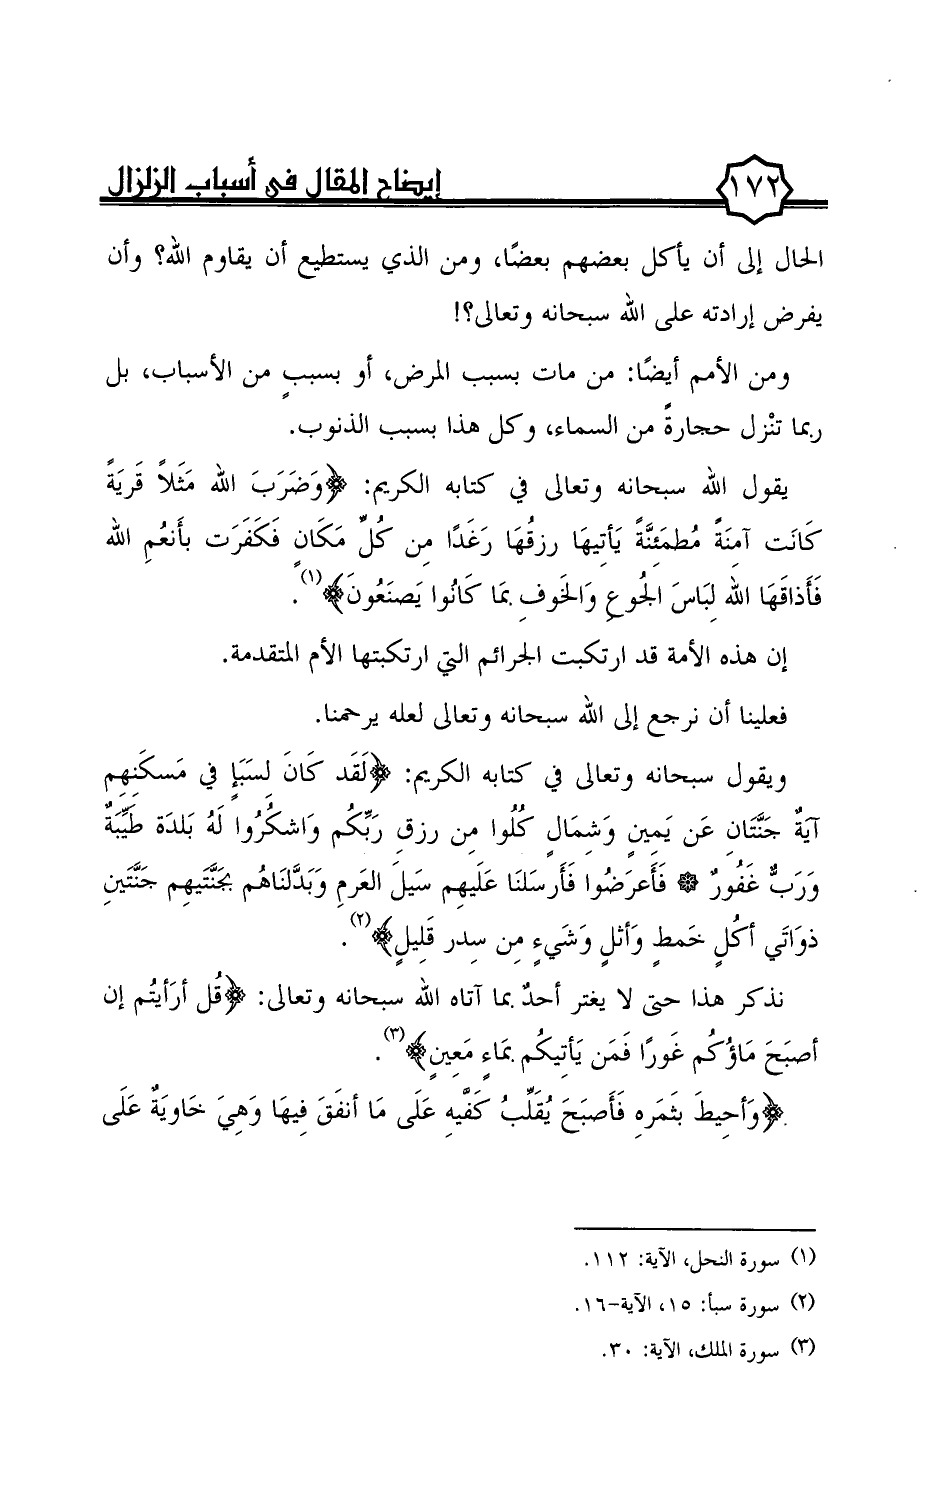 ١٧٢
إيضاح المقال في أسباب الزلزال
الحال إلى أن يأكل بعضهم بعضًا، ومن الذي يستطيع أن يقاوم الله؟ وأن
يفرض إرادته على الله سبحانه وتعالى؟!
ومن الأمم أيضًا: من مات بسبب المرض، أو بسببٍ من الأسباب، بل
ربما تنْزل حجارةً من السماء، وكل هذا بسبب الذنوب.
يقول الله سبحانه وتعالى في كتابه الكريم: ﴿وَضَرَبَ الله مَثَلاً قَريَةً
كَانَت آمنَةً مُطمَئنَّةً يَأتيهَا رزقُهَا رَغَدًا من كُلِّ مَكَانٍ فَكَفَرَت بأَنعُمِ الله
فَأَذَاقَهَا الله لِبَاسَ الجُوعِ وَالخَوفِ بمَا كَانُوا يَصنَعُونَ﴾(١).
إن هذه الأمة قد ارتكبت الجرائم التي ارتكبتها الأم المتقدمة.
فعلينا أن نرجع إلى الله سبحانه وتعالى لعله يرحمنا.
ويقول سبحانه وتعالى في كتابه الكريم: ﴿لَقَد كَانَ لِسَبَإٍ في مَسكَنِهِم
آيَةٌ جَنَّتَانِ عَن يَمِينٍ وَشِمَالٍ كُلُوا مِن رِزقِ رَبِّكُم وَاشكُرُوا لَهُ بَلدَة طَيِّبَةٌ
وَرَبٌّ غَفُورٌ * فَأَعرَضُوا فَأَرسَلنَا عَلَيهِم سَيلَ العَرِمِ وَبَدَّلنَاهُم بِجَنَّتَيهِم جَنَّتَينِ
ذَوَاتَي أكُلٍ خَمطٍ وَأَثلٍ وَشَيءٍ مِن سِدرٍ قَلِيلٍ﴾(٢).
نذكر هذا حتى لا يغتر أحدٌ بما آتاه الله سبحانه وتعالى: ﴿قُل أرَأَيتُم إن
أصبَحَ مَاؤُكُم غَورًا فَمَن يَأتِيكُم بِمَاءٍ مَعِينٍ﴾(٣).
﴿وَأحِيطَ بِثَمَرِهِ فَأَصبَحَ يُقَلِّبُ كَفَّيهِ عَلَى مَا أنفَقَ فِيهَا وَهِيَ خَاوِيَةٌ عَلَى
(١) سورة النحل، الآية: ١١٢.
(٢) سورة سبأ: ١٥، الآية-١٦.
(٣) سورة الملك، الآية: ٣٠.